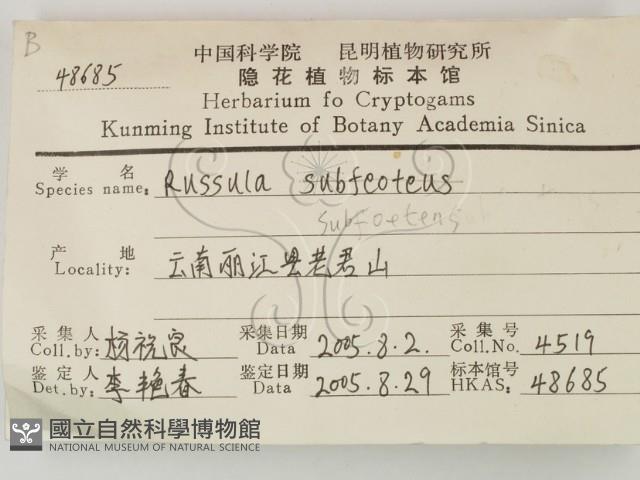 B
中国科学院 昆明植物研究所
48685
隐花植物标本馆
Herbarium fo Cryptogams
Kunming Institute of Botany Academia Sinica
学 名
Species name: Russula subfeoteus
subfoetens
产 地
Locality: 云南丽江县老君山
采集人 采集日期 采集号
Coll.by: 杨祝良 Data 2005.8.2. Coll.No. 4519
鉴定人 鉴定日期 标本馆号
Det.by: 李艳春 Data 2005.8.29 HKAS: 48685
國立自然科學博物館
NATIONAL MUSEUM OF NATURAL SCIENCE